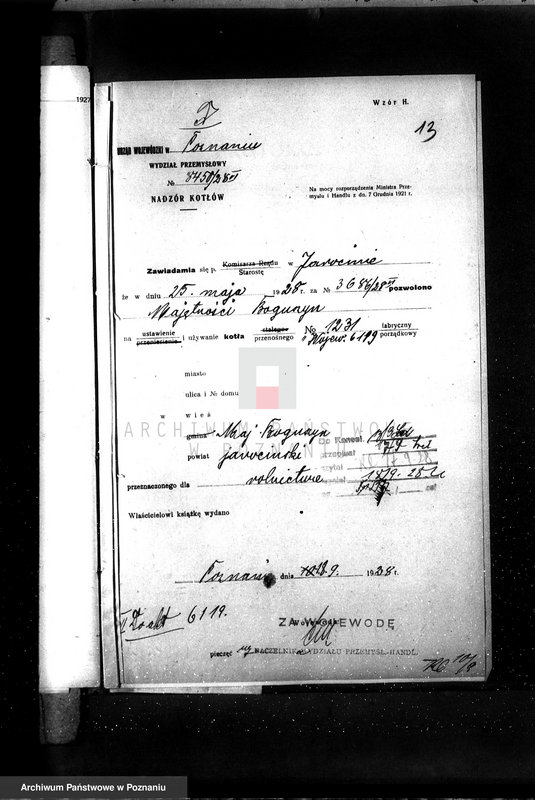 1927
Wzór H.
13
URZĄD WOJEWÓDZKI w Poznaniu
WYDZIAŁ PRZEMYSŁOWY
№ 8450/28 II
NADZÓR KOTŁÓW
Na mocy rozporządzenia Ministra Prze-
mysłu i Handlu z dn. 7 Grudnia 1921 r.
Zawiadamia się p. Komisarza Rządu
Starostę w Jarocinie
że w dniu 25. maja 1928 r. za № 3686/28 III pozwolono
Majętności Boguszyn
na ustawienie
przeniesienie i używanie kotła stałego
przenośnego № 1231 fabryczny
Wojew. 6119 porządkowy
miasto
ulica i № domu
w wieś
gmina Maj. Boguszyn
powiat jarociński
przeznaczonego dla rolnictwa
Właścicielowi książkę wydano
ARCHIWUM PAŃSTWOWE
W POZNANIU
Do Kancel.
przepisał
czytał
18/9. 28
Poznań, dnia 9. 1928 r.
II Do akt 6119.
ZA WOJEWODĘ
Wojewoda
pieczęć NACZELNIK WYDZIAŁU PRZEMYSŁ-HANDL.
Archiwum Państwowe w Poznaniu